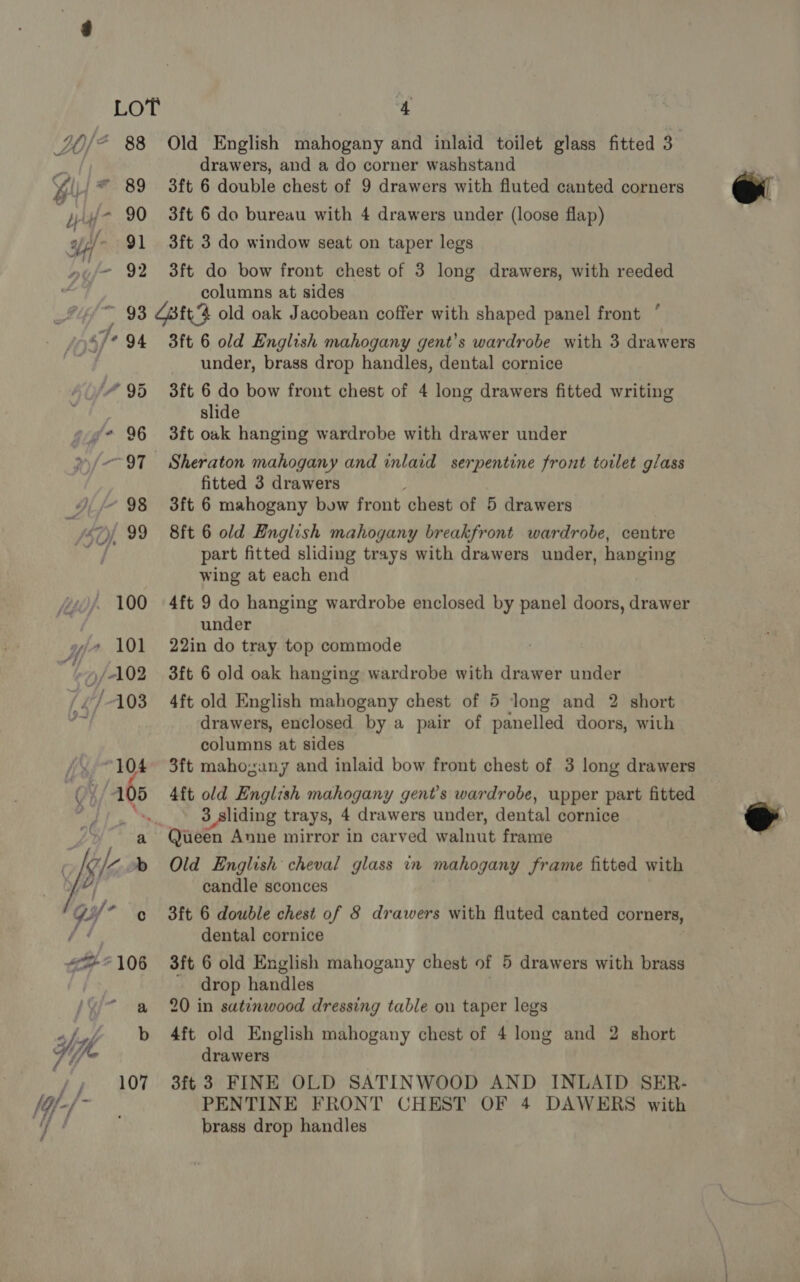 LOT 4
88 Old English mahogany and inlaid toilet glass fitted 3
drawers, and a do corner washstand
89 3ft 6 double chest of 9 drawers with fluted canted corners
90 3ft 6 do bureau with 4 drawers under (loose flap)
91 3ft 3 do window seat on taper legs
92 3ft do bow front chest of 3 long drawers, with reeded
columns at sides
93 old oak Jacobean coffer with shaped panel front
94 3ft 6 old English mahogany gent's wardrobe with 3 drawers
under, brass drop handles, dental cornice
95 3ft 6 do bow front chest of 4 long drawers fitted writing
slide
96 3ft oak hanging wardrobe with drawer under
97 Sheraton mahogany and inlaid serpentine front toilet glass
fitted 3 drawers
98 3ft 6 mahogany bow front chest of 5 drawers
99 8ft 6 old English mahogany breakfront wardrobe, centre
part fitted sliding trays with drawers under, hanging
wing at each end
100 4ft 9 do hanging wardrobe enclosed by panel doors, drawer
under
101 22in do tray top commode
102 3ft 6 old oak hanging wardrobe with drawer under
103 4ft old English mahogany chest of 5 long and 2 short
drawers, enclosed by a pair of panelled doors, with
columns at sides
104 3ft mahogany and inlaid bow front chest of 3 long drawers
105 4ft old English mahogany gent's wardrobe, upper part fitted
3 sliding trays, 4 drawers under, dental cornice
a Queen Anne mirror in carved walnut frame
b Old English cheval glass in mahogany frame fitted with
candle sconces
c 3ft 6 double chest of 8 drawers with fluted canted corners,
dental cornice
106 3ft 6 old English mahogany chest of 5 drawers with brass
drop handles
a 20 in satinwood dressing table on taper legs
b 4ft old English mahogany chest of 4 long and 2 short
drawers
107 3ft 3 FINE OLD SATINWOOD AND INLAID SER-
PENTINE FRONT CHEST OF 4 DAWERS with
brass drop handles